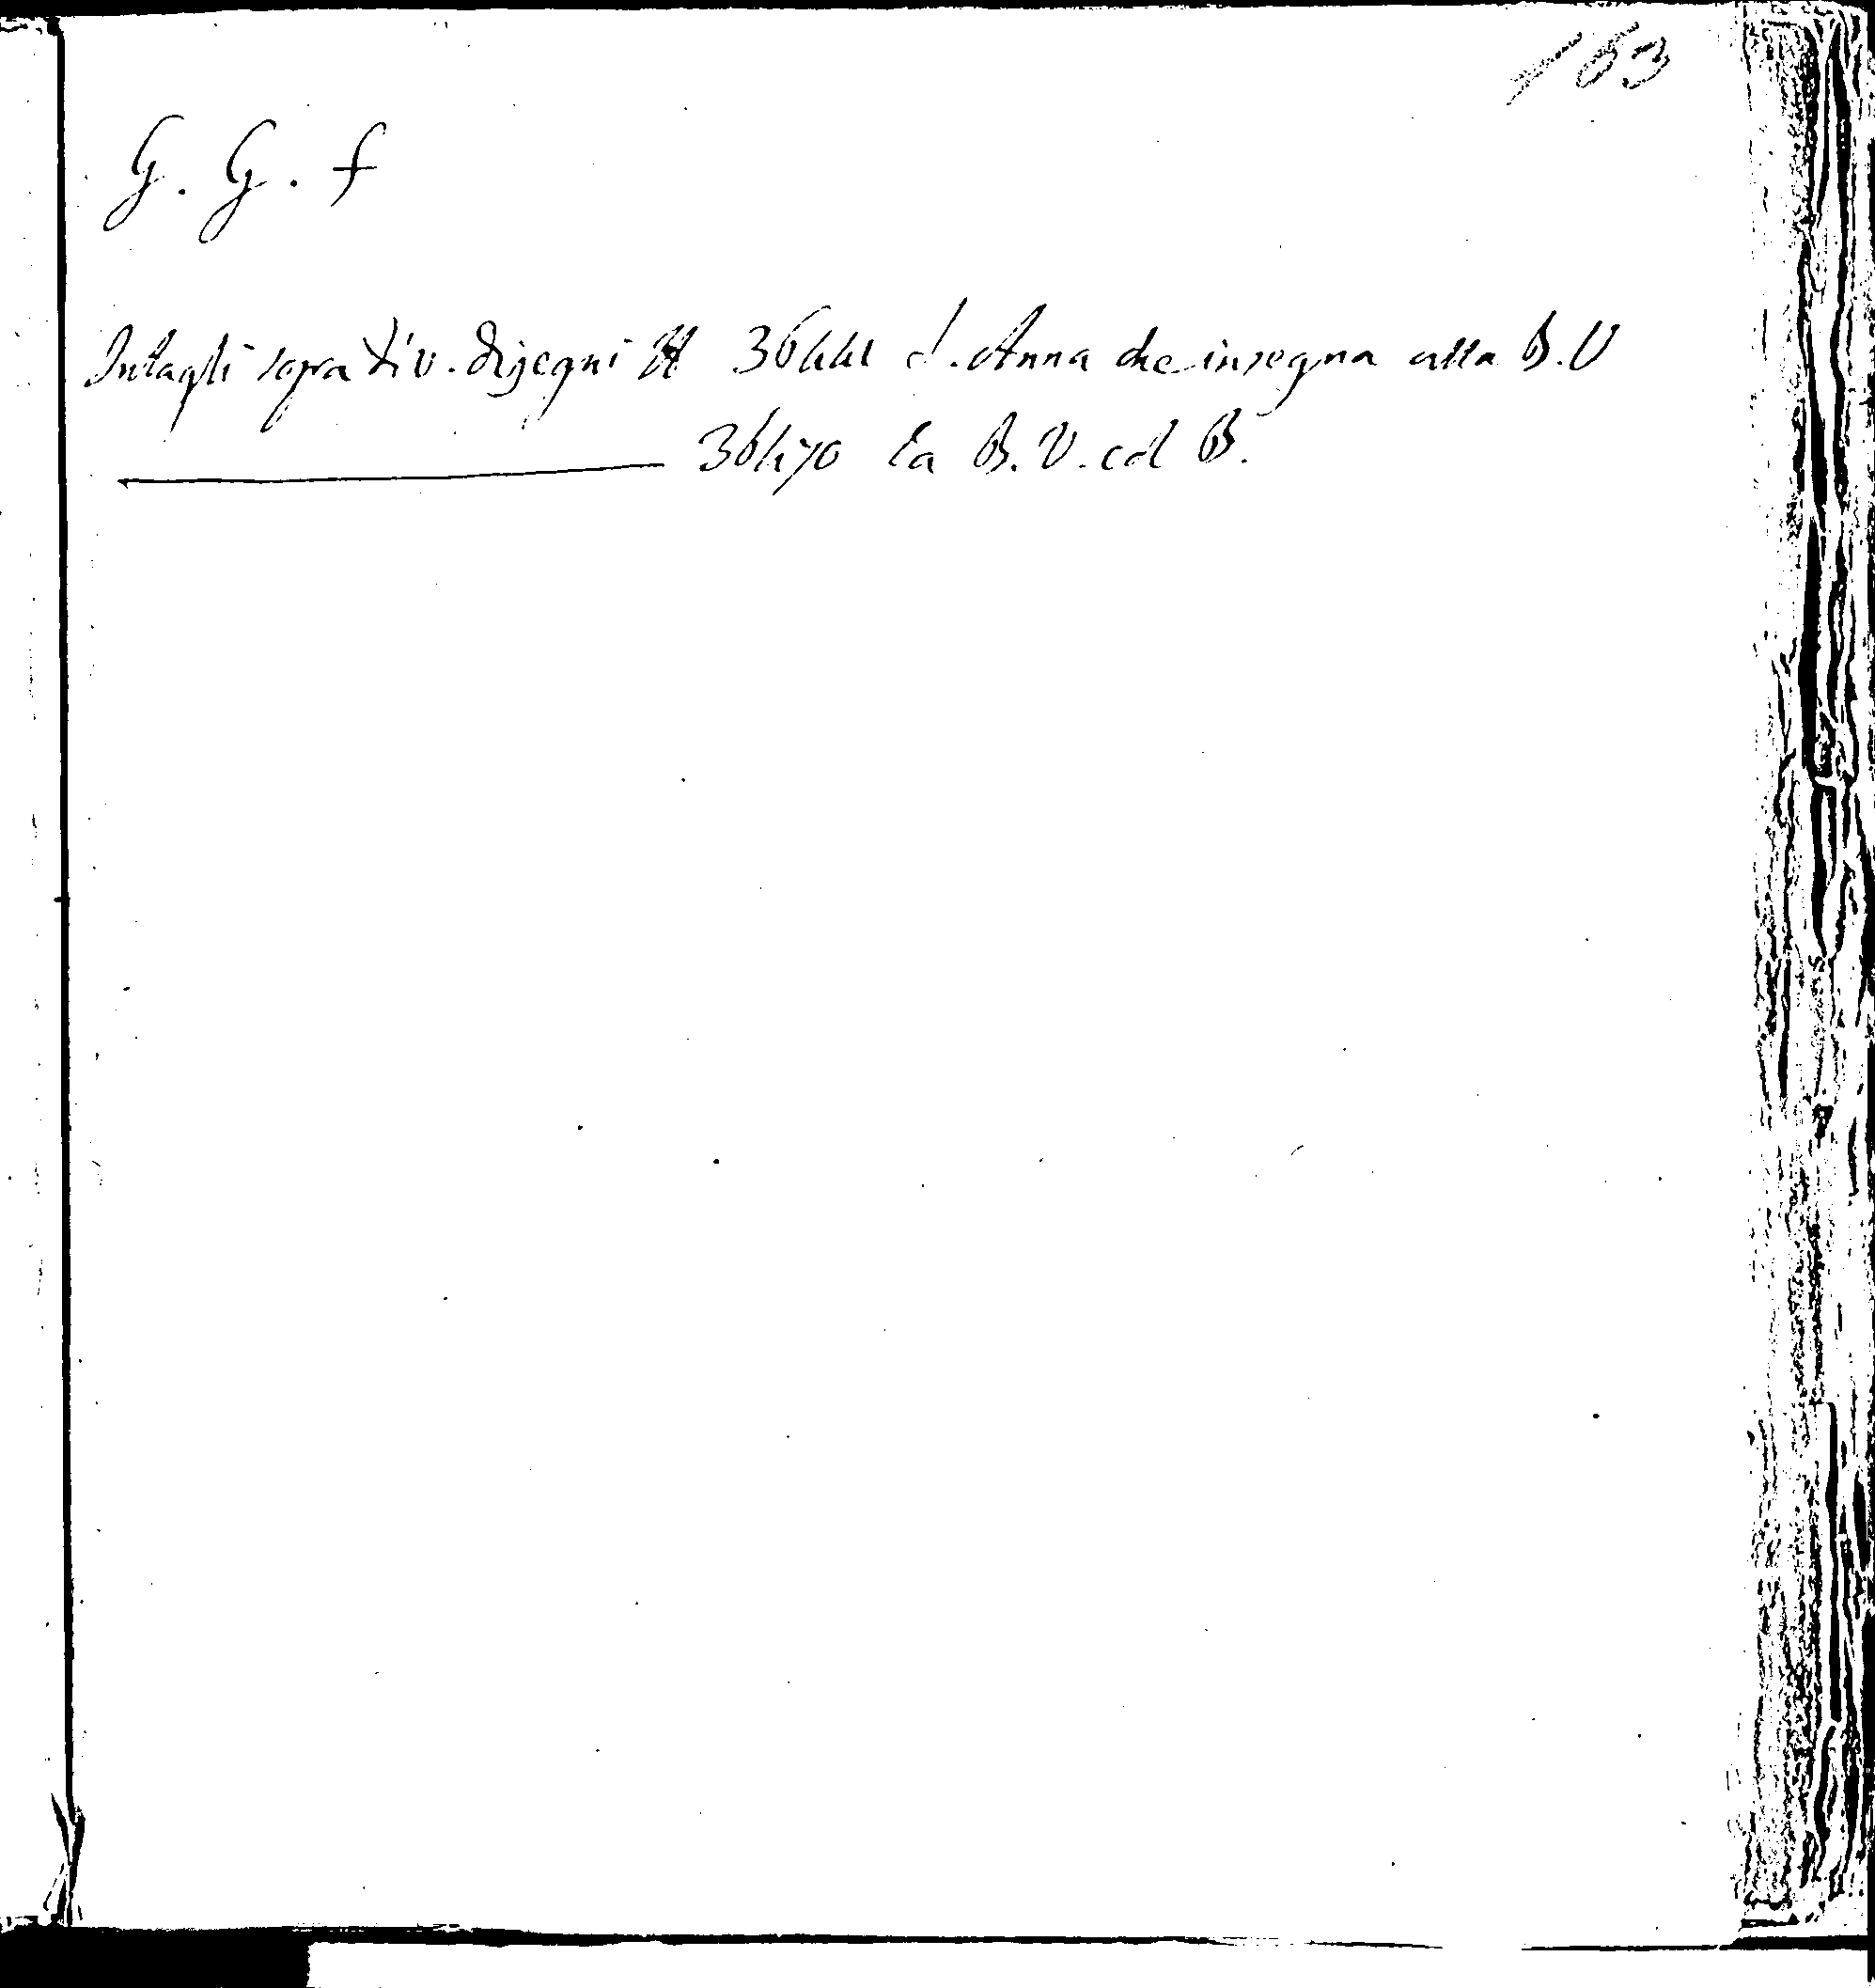 163
G. G. f
Intagli sopra div. disegni H 36441 S. Anna che insegna alla B. V
36470 La B. V. col B.